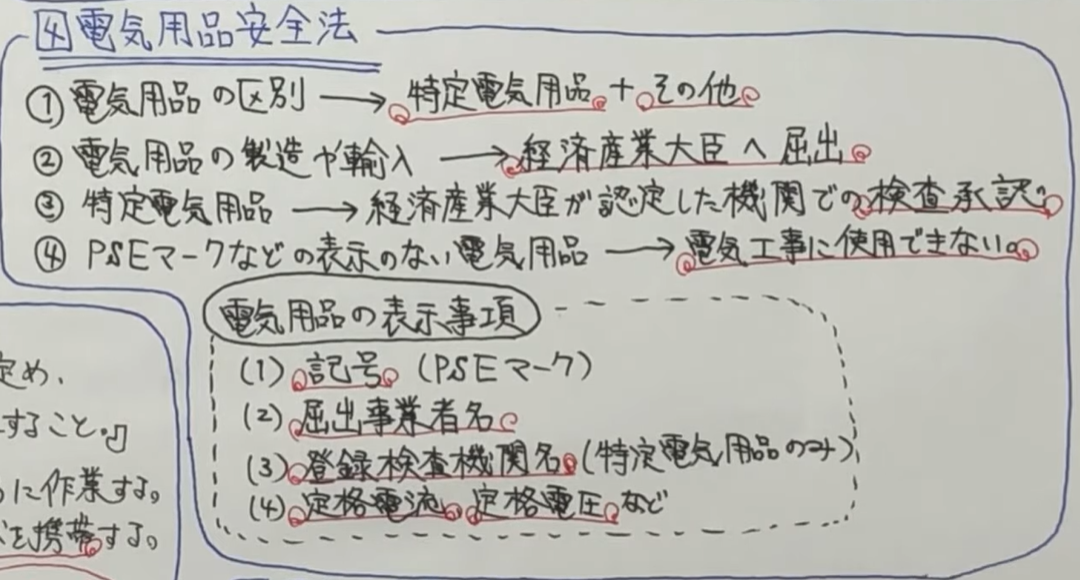 4 電気用品安全法
① 電気用品の区別 → 特定電気用品 + その他
② 電気用品の製造や輸入 → 経済産業大臣へ届出
③ 特定電気用品 → 経済産業大臣が認定した機関での検査承認。
④ PSEマークなどの表示のない電気用品 → 電気工事に使用できない。
電気用品の表示事項
(1) 記号 (PSEマーク)
(2) 届出事業者名
(3) 登録検査機関名 (特定電気用品のみ)
(4) 定格電流、定格電圧など
定め、
すること。』
に作業する。
を携帯する。